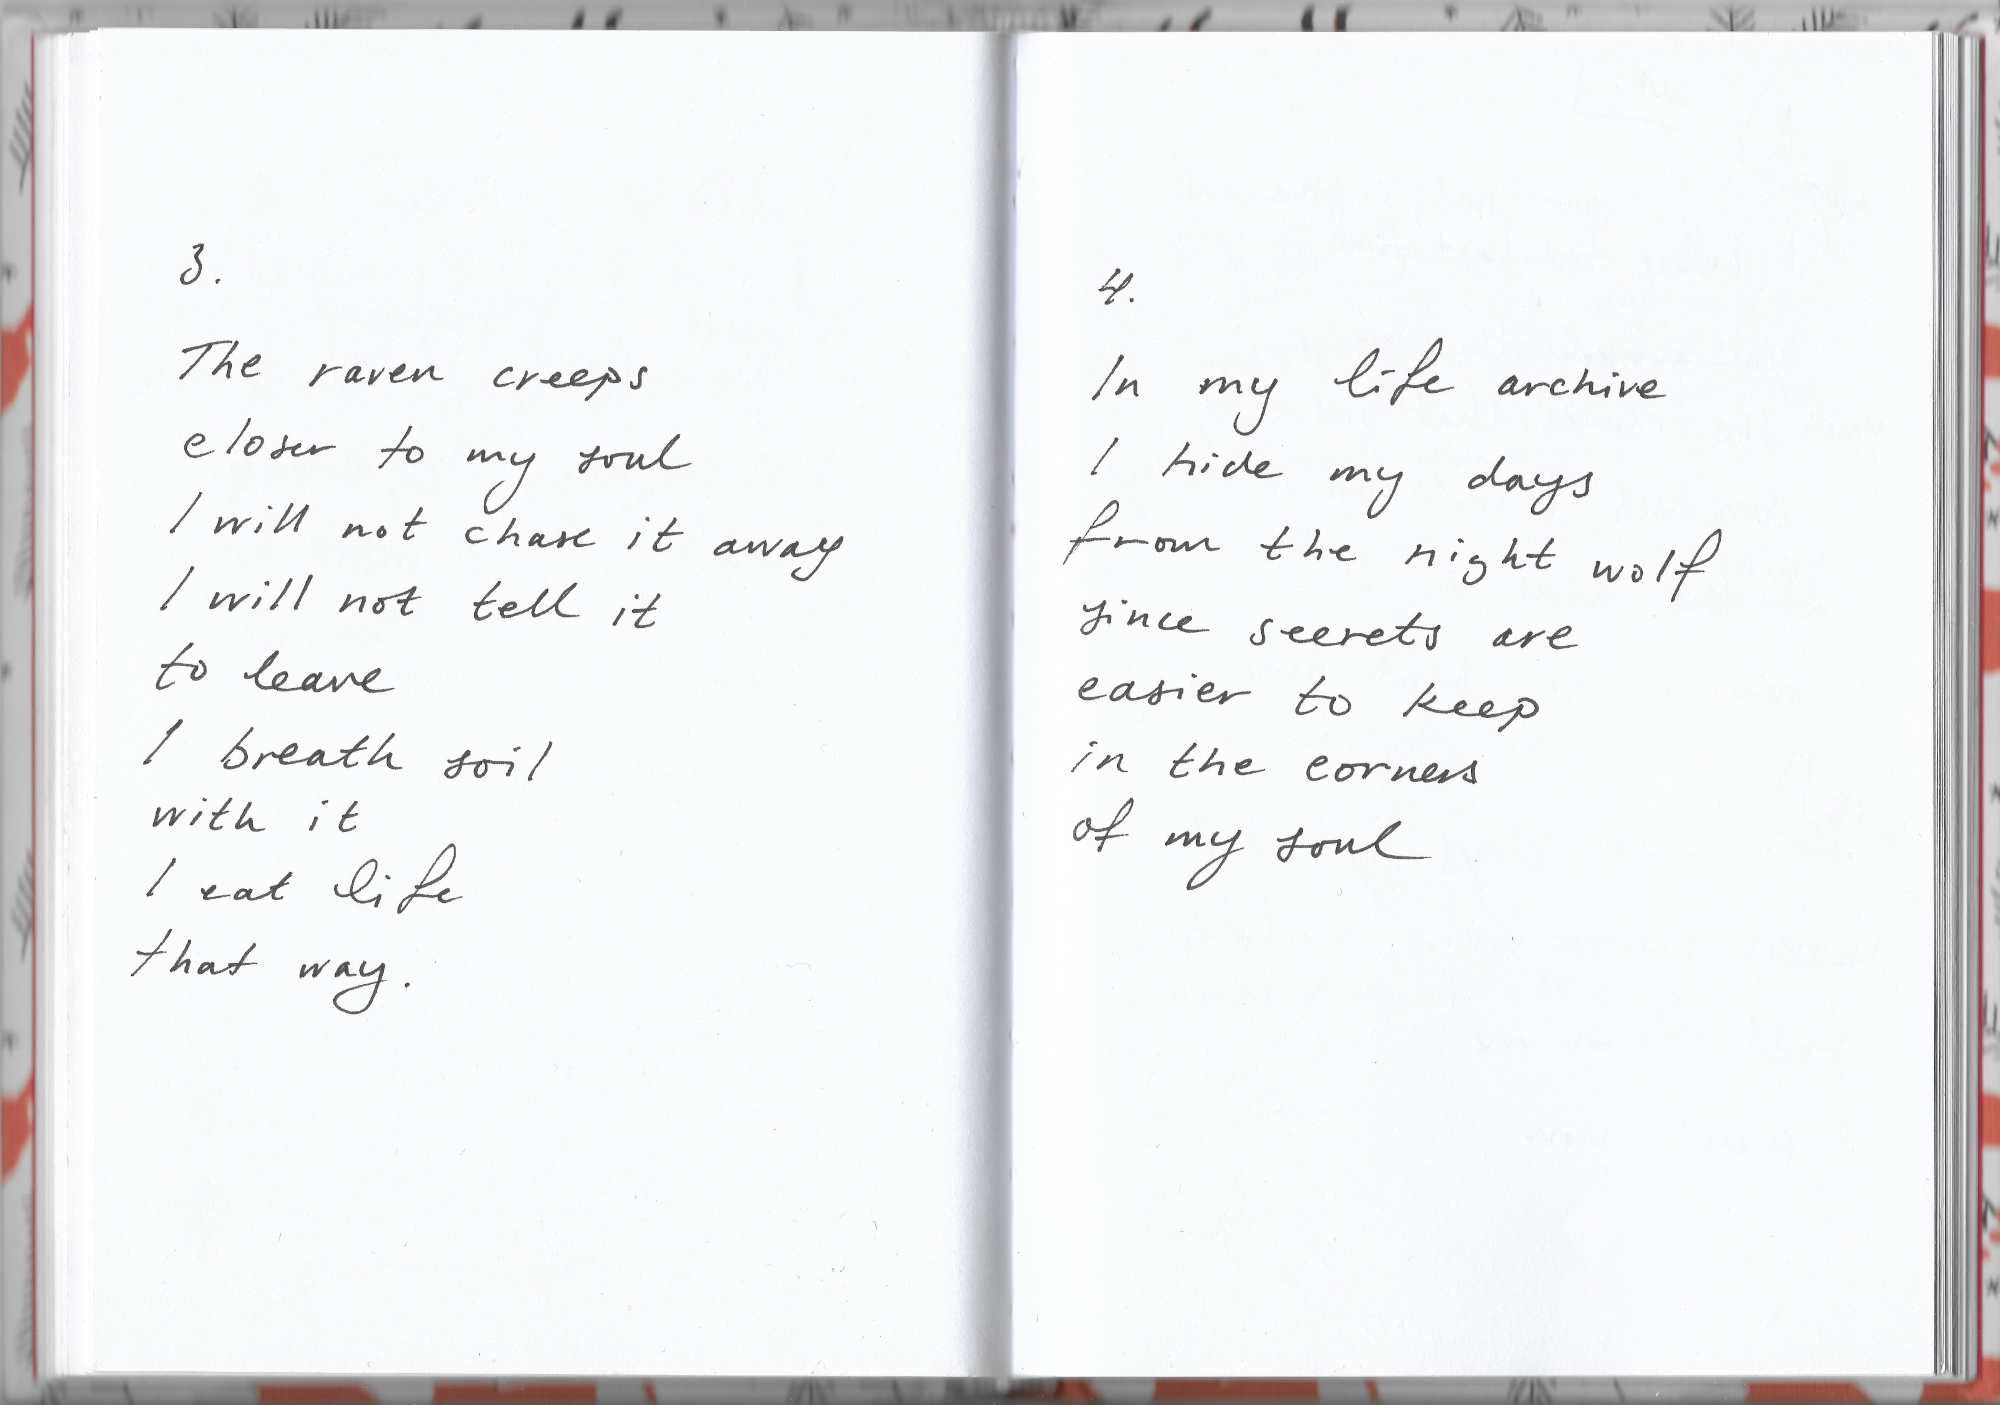 3.
The raven creeps
closer to my soul
I will not chase it away
I will not tell it
to leave
I breath soil
with it
I eat life
that way.
4.
In my life archive
I hide my days
from the night wolf
since secrets are
easier to keep
in the corners
of my soul